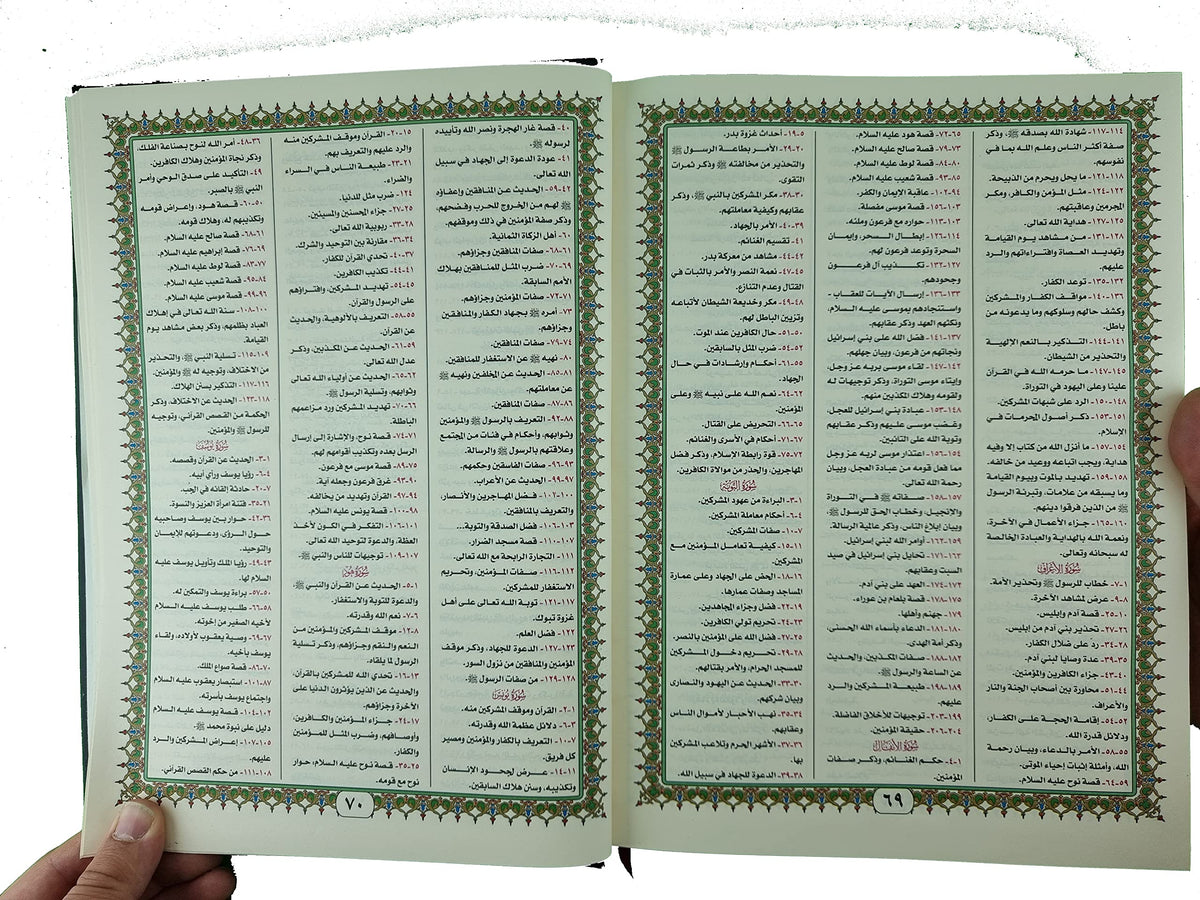 ١١٤-١١٧- شهادة الله بصدقه ﷺ، وذكر
صفة أكثر الناس وعلم الله بما في
نفوسهم.
١١٨-١٢١- ما يحل ويحرم من الذبيحة.
١٢٢-١٢٤- مثل المؤمن والكافر، ومكر
المجرمين وعاقبتهم.
١٢٥-١٢٧- هداية الله تعالى.
١٢٨-١٣١- من مشاهد يوم القيامة
وتهديد العصاة وافتراءاتهم والرد
عليهم.
١٣٢-١٣٥- توعد الكفار.
١٣٦-١٤٠- مواقف الكفار والمشركين
وكشف حالهم وسلوكهم وما يدعونه من
باطل.
١٤١-١٤٤- التذكير بالنعم الإلهية
والتحذير من الشيطان.
١٤٥-١٤٧- ما حرمه الله في القرآن
علينا وعلى اليهود في التوراة.
١٤٨-١٥٠- الرد على شبهات المشركين.
١٥١-١٥٣- ذكر أصول المحرمات في
الإسلام.
١٥٤-١٥٧- ما أنزل الله من كتاب إلا وفيه
هداية، ويجب اتباعه ووعيد من خالفه.
١٥٨-١٥٩- تهديد بالموت ويوم القيامة
وما يسبقه من علامات، وتبرئة الرسول
ﷺ من الذين فرقوا دينهم.
١٦٠-١٦٥- جزاء الأعمال في الآخرة،
ونعمة الله بالهداية والعبادة الخالصة
له سبحانه وتعالى.
سورة الأعراف
١-٧- خطاب للرسول ﷺ وتحذير الأمة.
٨-٩- عرض لمشاهد الآخرة.
١٠-٢٥- قصة آدم وإبليس.
٢٦-٢٧- تحذير بني آدم من إبليس.
٢٨-٣٤- رد على ضلال الكفار.
٣٥-٣٩- عدة وصايا لبني آدم.
٤٠-٤٣- جزاء الكافرين والمؤمنين.
٤٤-٥١- محاورة بين أصحاب الجنة والنار
والأعراف.
٥٢-٥٤- إقامة الحجة على الكفار،
ودلائل قدرة الله.
٥٥-٥٨- الأمر بالدعاء، وبيان رحمة
الله، وأمثلة إثبات إحياء الموتى.
٥٩-٦٤- قصة نوح عليه السلام.
٦٥-٧٢- قصة هود عليه السلام.
٧٣-٧٩- قصة صالح عليه السلام.
٨٠-٨٤- قصة لوط عليه السلام.
٨٥-٩٣- قصة شعيب عليه السلام.
٩٤-١٠٢- عاقبة الإيمان والكفر.
١٠٣-١٥٦- قصة موسى مفصلة.
١٠٣-١١٣- حواره مع فرعون وملئه.
١١٤-١٢٦- إبطال السحر، وإيمان
السحرة وتوعد فرعون لهم.
١٢٧-١٣٢- تكذيب آل فرعون
وجحودهم.
١٣٣-١٣٦- إرسال الآيات للعقاب -
واستنجادهم بموسى عليه السلام،
ونكثهم العهد وذكر عقابهم.
١٣٧-١٤١- فضل الله على بني إسرائيل
ونجاتهم من فرعون، وبيان جهلهم.
١٤٢-١٤٧- لقاء موسى بربه عز وجل
وإيتاء موسى التوراة، وذكر توجيهات له
ولقومه وهلاك المكذبين منهم.
١٤٨-١٥٣- عبادة بني إسرائيل للعجل،
وغضب موسى عليهم وذكر عقابهم
وتوبة الله على التائبين.
١٥٤-١٥٦- اعتذار موسى لربه عز وجل
مما فعل قومه من عبادة العجل، وبيان
رحمة الله.
١٥٧-١٥٨- صفاته ﷺ في التوراة
والإنجيل، وخطاب الحق للرسول ﷺ
وبيان إبلاغ الناس، وذكر عالمية الرسالة.
١٥٩-١٦٢- أوامر الله لبني إسرائيل.
١٦٣-١٧١- تحايل بني إسرائيل في صيد
السبت وعقابهم.
١٧٢-١٧٤- العهد على بني آدم.
١٧٥-١٧٨- قصة بلعام بن عوراء.
١٧٩- جهنم وأهلها.
١٨٠-١٨١- الدعاء بأسماء الله الحسنى،
وذكر أمة الهدى.
١٨٢-١٨٨- صفات المكذبين، والحديث
عن الساعة والرسول ﷺ.
١٨٩-١٩٨- طبيعة المشركين والرد
عليهم.
١٩٩-٢٠٣- توجيهات للأخلاق الفاضلة.
٢٠٤-٢٠٦- حقيقة المؤمنين.
سورة الأنفال
١-٤- حكم الغنائم، وذكر صفات
المؤمنين.
٥-١٩- أحداث غزوة بدر.
٢٠-٢٩- الأمر بطاعة الرسول ﷺ
والتحذير من مخالفته ﷺ وذكر ثمرات
التقوى.
٣٠-٣٨- مكر المشركين بالنبي ﷺ، وذكر
عقابهم وكيفية معاملتهم.
٣٩-٤٠- الأمر بالجهاد.
٤١- تقسيم الغنائم.
٤٢-٤٤- مشاهد من معركة بدر.
٤٥-٤٧- نعمة النصر والأمر بالثبات في
القتال وعدم التنازع.
٤٨-٤٩- مكر وخديعة الشيطان لأتباعه
وتزيين الباطل لهم.
٥٠-٥١- حال الكافرين عند الموت.
٥٢-٥٤- ضرب المثل بالسابقين.
٥٥-٦١- أحكام وإرشادات في حال
الجهاد.
٦٢-٦٤- نعم الله على نبيه ﷺ وعلى
المؤمنين.
٦٥-٦٦- التحريض على القتال.
٦٧-٧١- أحكام في الأسرى والغنائم.
٧٢-٧٥- قوة رابطة الإسلام، وذكر فضل
المهاجرين، والحذر من موالاة الكافرين.
سورة التوبة
١-٣- البراءة من عهود المشركين.
٤-٦- أحكام معاملة المشركين.
٧-١٠- صفات المشركين.
١١-١٥- كيفية تعامل المؤمنين مع
المشركين.
١٦-١٨- الحض على الجهاد وعلى عمارة
المساجد وصفات عمارها.
١٩-٢٢- فضل وجزاء المجاهدين.
٢٣-٢٤- تحريم تولي الكافرين.
٢٥-٢٧- فضل الله على المؤمنين بالنصر.
٢٨-٢٩- تحريم دخول المشركين
للمسجد الحرام، والأمر بقتالهم.
٣٠-٣٣- الحديث عن اليهود والنصارى
وبيان شركهم.
٣٤-٣٥- نهب الأحبار لأموال الناس
وعقابهم.
٣٦-٣٧- الأشهر الحرم وتلاعب المشركين
بها.
٣٨-٣٩- الدعوة للجهاد في سبيل الله.
٦٩
٤٠- قصة غار الهجرة ونصر الله وتأييده
لرسوله ﷺ.
٤١- عودة الدعوة إلى الجهاد في سبيل
الله تعالى.
٤٢-٥٩- الحديث عن المنافقين وإعفاؤه
ﷺ لهم من الخروج للحرب وفضحهم،
وذكر صفة المؤمنين في ذلك وموقفهم.
٦٠- أهل الزكاة الثمانية.
٦١-٦٨- صفات المنافقين وجزاؤهم.
٦٩-٧٠- ضرب المثل للمنافقين بهلاك
الأمم السابقة.
٧١-٧٢- صفات المؤمنين وجزاؤهم.
٧٣- أمره ﷺ بجهاد الكفار والمنافقين
وجزاؤهم.
٧٤-٧٩- صفات المنافقين.
٨٠- نهيه ﷺ عن الاستغفار للمنافقين.
٨١-٨٥- الحديث عن المخلفين ونهيه ﷺ
عن معاملتهم.
٨٦-٨٧- صفات المنافقين.
٨٨-٩٢- التعريف بالرسول ﷺ والمؤمنين
وثوابهم، وأحكام في فئات من المجتمع
وعلاقتهم بالرسول ﷺ والرسالة.
٩٣-٩٦- صفات الفاسقين وحكمهم.
٩٧-٩٩- الحديث عن الأعراب.
١٠٠-١٠٢- فضل المهاجرين والأنصار،
والتعريف بالمنافقين.
١٠٣-١٠٦- فضل الصدقة والتوبة...
١٠٧-١١٠- قصة مسجد الضرار.
١١١- التجارة الرابحة مع الله تعالى.
١١٢-١١٦- صفات المؤمنين، وتحريم
الاستغفار للمشركين.
١١٧-١٢١- توبة الله تعالى على أهل
غزوة تبوك.
١٢٢- فضل العلم.
١٢٣-١٢٧- الدعوة للجهاد، وذكر موقف
المؤمنين والمنافقين من نزول السور.
١٢٨-١٢٩- من صفات الرسول ﷺ.
سورة يونس
١-٢- القرآن وموقف المشركين منه.
٣-٦- دلائل عظمة الله وقدرته.
٧-١٠- التعريف بالكفار والمؤمنين ومصير
كل فريق.
١١-١٤- عرض لجحود الإنسان
وتكذيبه، وسنن هلاك السابقين.
١٥-٢٠- القرآن وموقف المشركين منه
والرد عليهم والتعريف بهم.
٢١-٢٣- طبيعة الناس في السراء
والضراء.
٢٤- ضرب مثل للدنيا.
٢٥-٢٧- جزاء المحسنين والمسيئين.
٢٨-٣٣- ربوبية الله تعالى.
٣٤-٣٦- مقارنة بين التوحيد والشرك.
٣٧-٤٠- تحدي القرآن للكفار.
٤١-٤٤- تكذيب الكافرين.
٤٥-٥٤- تهديد المشركين، وافتراؤهم
على الرسول والقرآن.
٥٥-٥٨- التعريف بالألوهية، والحديث
عن القرآن.
٥٩-٦١- الحديث عن المكذبين، وذكر
عدل الله تعالى.
٦٢-٦٥- الحديث عن أولياء الله تعالى
وثوابهم، وتسلية الرسول ﷺ.
٦٦-٧٠- تهديد المشركين ورد مزاعمهم
الباطلة.
٧١-٧٤- قصة نوح، والإشارة إلى إرسال
الرسل بعده وتكذيب أقوامهم لهم.
٧٥-٨٩- قصة موسى مع فرعون.
٩٠-٩٣- غرق فرعون وجعله آية.
٩٤-٩٧- القرآن وتهديد من يخالفه.
٩٨-١٠٠- قصة يونس عليه السلام.
١٠١-١٠٦- التفكر في الكون لأخذ
العظة، والدعوة لتوحيد الله تعالى.
١٠٧-١٠٩- توجيهات للناس والنبي ﷺ.
سورة هود
١-٥- الحديث عن القرآن والنبي ﷺ
والدعوة للتوبة والاستغفار.
٦-٧- نعم الله وقدرته.
٨-١٢- موقف المشركين والمؤمنين من
النعم والنقم وجزاؤهم، وذكر تسلية
الرسول لما يلقاه.
١٣-١٦- تحدي الله للمشركين بالقرآن،
والحديث عن الذين يؤثرون الدنيا على
الآخرة وجزاؤهم.
١٧-٢٤- جزاء المؤمنين والكافرين،
وأوصافهم، وضرب المثل للمؤمنين
والكفار.
٢٥-٣٥- قصة نوح عليه السلام، حوار
نوح مع قومه.
٣٦-٤٨- أمر الله لنوح بصناعة الفلك،
وذكر نجاة المؤمنين وهلاك الكافرين.
٤٩- التأكيد على صدق الوحي وأمر
النبي ﷺ بالصبر.
٥٠-٦٠- قصة هود، وإعراض قومه
وتكذيبهم له، وهلاك قومه.
٦١-٦٨- قصة صالح عليه السلام.
٦٩-٧٦- قصة إبراهيم عليه السلام.
٧٧-٨٣- قصة لوط عليه السلام.
٨٤-٩٥- قصة شعيب عليه السلام.
٩٦-٩٩- قصة موسى عليه السلام.
١٠٠-١٠٨- سنة الله تعالى في إهلاك
العباد بظلمهم، وذكر بعض مشاهد يوم
القيامة.
١٠٩-١١٥- تسلية النبي ﷺ، والتحذير
من الاختلاف، وتوجيه له ﷺ والمؤمنين.
١١٦-١١٧- التذكير بسنن الهلاك.
١١٨-١٢٣- الحديث عن الاختلاف، وذكر
الحكمة من القصص القرآني، وتوجيه
للرسول ﷺ والمؤمنين.
سورة يوسف
١-٣- الحديث عن القرآن وقصصه.
٤-٦- رؤيا يوسف ورأي أبيه.
٧-٢٠- حادثة إلقائه في الجب.
٢١-٣٥- فتنة امرأة العزيز والنسوة.
٣٦-٤٢- حوار بين يوسف وصاحبيه
حول الرؤى، ودعوتهم للإيمان
والتوحيد.
٤٣-٤٩- رؤيا الملك وتأويل يوسف عليه
السلام لها.
٥٠-٥٧- براءة يوسف والتمكين له.
٥٨-٦٦- طلب يوسف عليه السلام
لأخيه الصغير من إخوته.
٦٧-٦٩- وصية يعقوب لأولاده، ولقاء
يوسف بأخيه.
٧٠-٨٦- قصة صواع الملك.
٨٧-١٠١- استبشار يعقوب عليه السلام
واجتماع يوسف بأسرته.
١٠٢-١٠٤- قصة يوسف عليه السلام
دليل على نبوة محمد ﷺ.
١٠٥-١٠٧- إعراض المشركين والرد
عليهم.
١٠٨-١١١- من حكم القصص القرآني.
٧٠